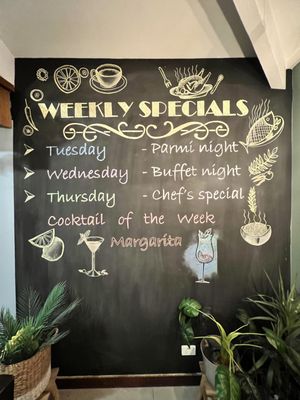 WEEKLY SPECIALS
Tuesday - Parmi night
Wednesday - Buffet night
Thursday - Chef's special
Cocktail of the Week
Margarita